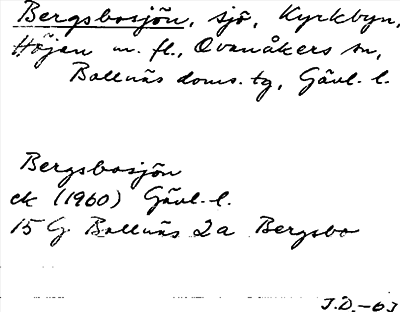 Bergsbosjön, sjö, Kyrkbyn,
Höjen m. fl., Ovanåkers sn,
Bollnäs doms. tg, Gävl. l.
Bergsbosjön
ek (1960) Gävl. l.
15 G Bollnäs 2a Bergsbo
J.D. -63